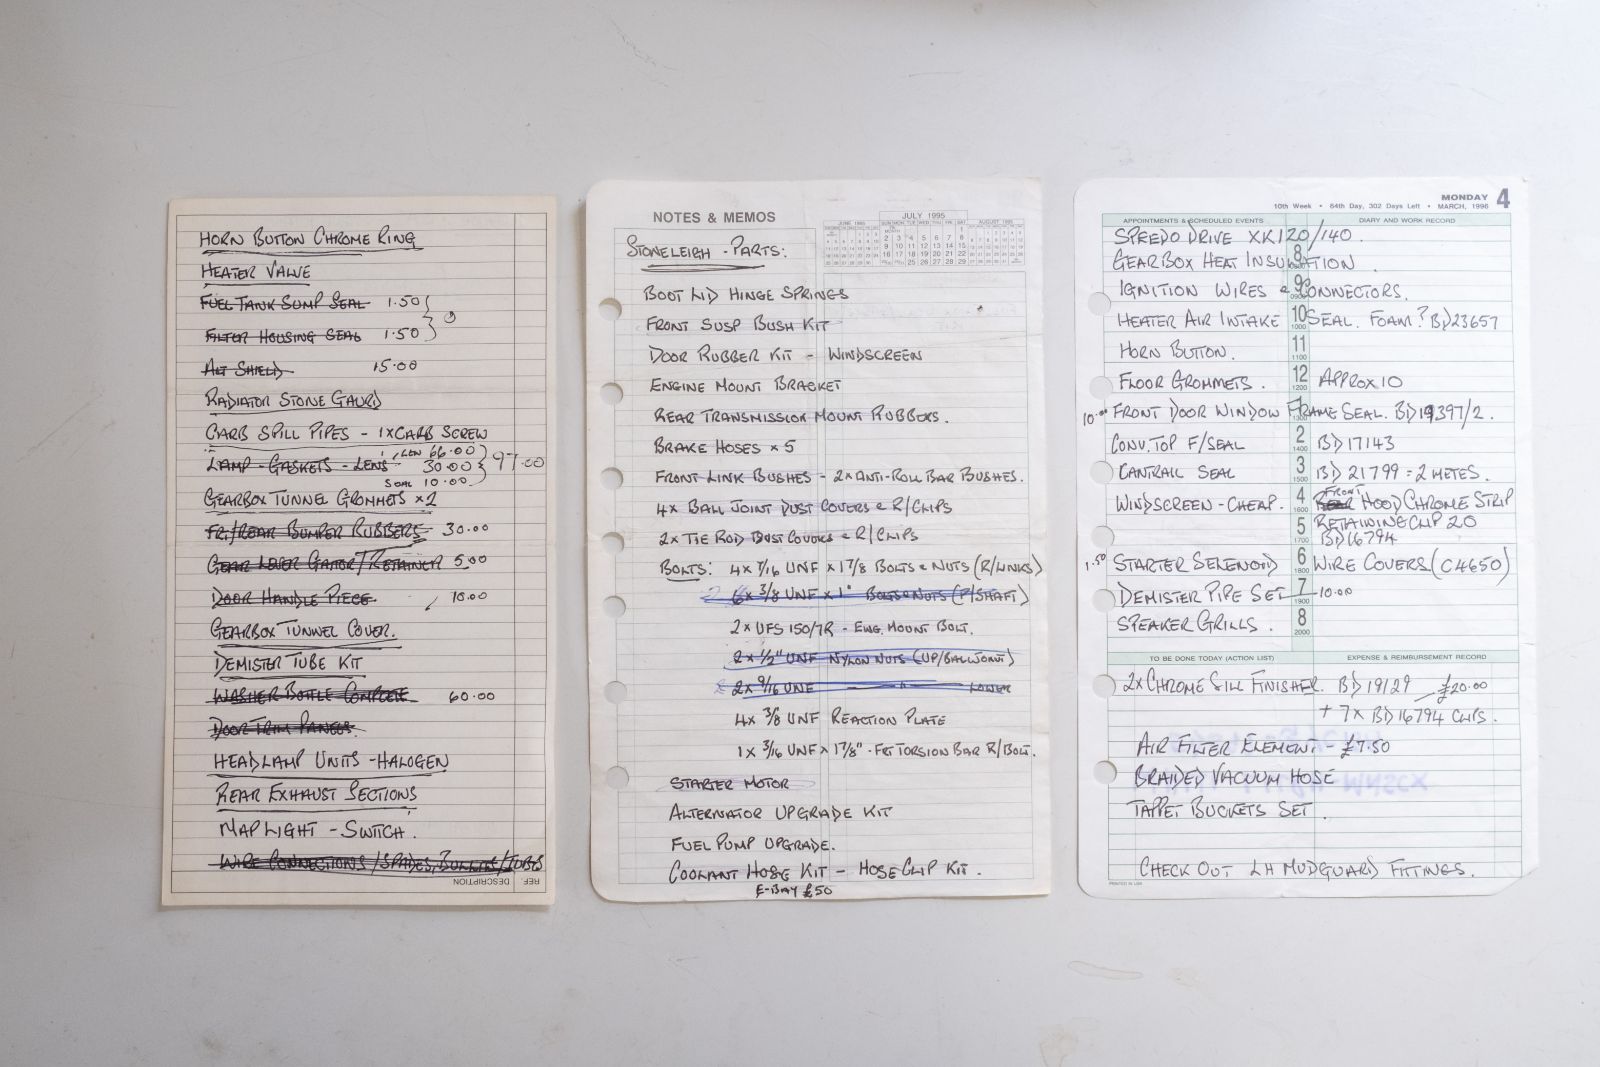 HORN BUTTON CHROME RING
HEATER VALVE
FUEL TANK SUMP SEAL 1.50
FILTER HOUSING SEAL 1.50
ALT SHIELD 15.00
RADIATOR STONE GAURD
CARB SPILL PIPES - 1 x CARB SCREW
LEN 66.00
LAMP - GASKETS - LENS 30.00 97.00
SEAL 10.00
GEARBOX TUNNEL GROMMETS x 2
FR/REAR BUMPER RUBBERS 30.00
GEAR LEVER GATOR/RETAINER 5.00
DOOR HANDLE PIECE 10.00
GEARBOX TUNNEL COVER.
DEMISTER TUBE KIT
WASHER BOTTLE COMPLETE 60.00
DOOR TRIM PANELS
HEADLAMP UNITS - HALOGEN
REAR EXHAUST SECTIONS
MAP LIGHT - SWITCH.
WIRE CONNECTIONS / SPADES, BULLIT/TUBES
REF. DESCRIPTION
NOTES & MEMOS
JUNE 1995 JULY 1995 AUGUST 1995
STONELEIGH - PARTS:
BOOT LID HINGE SPRINGS
FRONT SUSP BUSH KIT
DOOR RUBBER KIT - WINDSCREEN
ENGINE MOUNT BRACKET
REAR TRANSMISSION MOUNT RUBBERS.
BRAKE HOSES x 5
FRONT LINK BUSHES - 2 x ANTI-ROLL BAR BUSHES.
4x BALL JOINT DUST COVERS & R/CLIPS
2x TIE ROD DUST COVERS & R/CLIPS
BOLTS: 4 x 7/16 UNF x 1 7/8 BOLTS & NUTS (R/LINKS)
6x 3/8 UNF x 1" BOLTS & NUTS (P/SHAFT)
2 x UFS 150/7R - ENG. MOUNT BOLT.
2 x 1/2" UNF NYLON NUTS (UP/BALL JOINT)
2 x 9/16 UNF LOWER
4x 3/8 UNF REACTION PLATE
1 x 3/16 UNF x 1 7/8" - FRT TORSION BAR R/BOLT.
STARTER MOTOR
ALTERNATOR UPGRADE KIT
FUEL PUMP UPGRADE.
COOLANT HOSE KIT - HOSE CLIP KIT.
E-BAY £50
MONDAY 4
10th Week • 64th Day, 302 Days Left • MARCH, 1996
APPOINTMENTS & SCHEDULED EVENTS DIARY AND WORK RECORD
SPEEDO DRIVE XK120/140.
8
GEARBOX HEAT INSULATION.
9
IGNITION WIRES & CONNECTORS.
HEATER AIR INTAKE 10 SEAL. FOAM? BD23657
1000
HORN BUTTON. 11
1100
FLOOR GROMMETS. 12 APPROX 10
1200
10.00 FRONT DOOR WINDOW FRAME SEAL. BD19397/2.
CONV. TOP F/SEAL 2 BD17143
1400
CANTRAIL SEAL 3 BD 21799 = 2 METES.
1500
WINDSCREEN - CHEAP. 4 FRONT HOOD CHROME STRIP
1600
5 RETAINING CLIP 20
1700 BD16794
1.50 STARTER SELENOID 6 WIRE COVERS (C4650)
1800
DEMISTER PIPE SET 7 10.00
1900
SPEAKER GRILLS. 8
2000
TO BE DONE TODAY (ACTION LIST) EXPENSE & REIMBURSEMENT RECORD
2x CHROME SILL FINISHER. BD 19129 £20.00
+ 7 x BD16794 CLIPS.
AIR FILTER ELEMENT - £7.50
BRAIDED VACUUM HOSE
TAPPET BUCKETS SET.
CHECK OUT LH MUDGUARD FITTINGS.
PRINTED IN USA